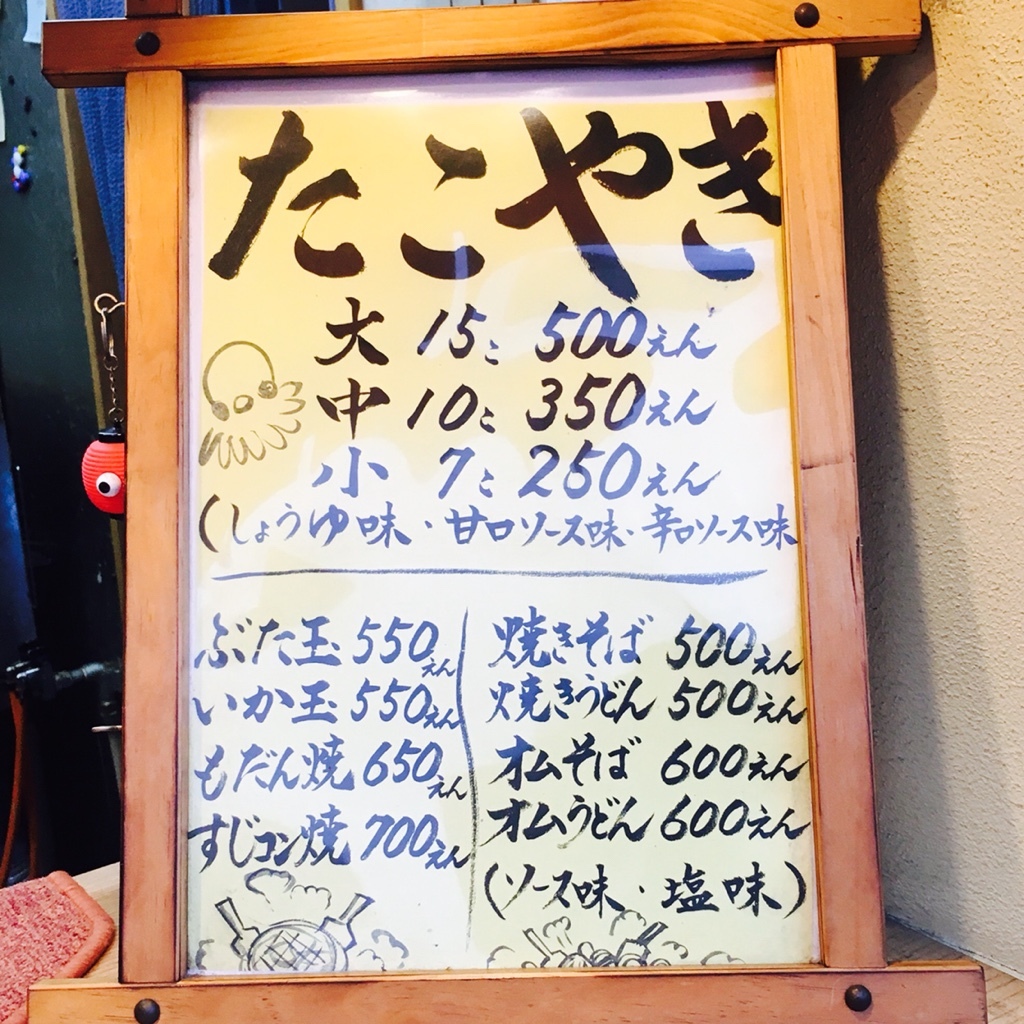 たこやき
大 15こ 500えん
中 10こ 350えん
小 7こ 250えん
(しょうゆ味・甘口ソース味・辛口ソース味
ぶた玉 550えん
いか玉 550えん
もだん焼 650えん
すじコン焼 700えん
焼きそば 500えん
焼きうどん 500えん
オムそば 600えん
オムうどん 600えん
(ソース味・塩味)